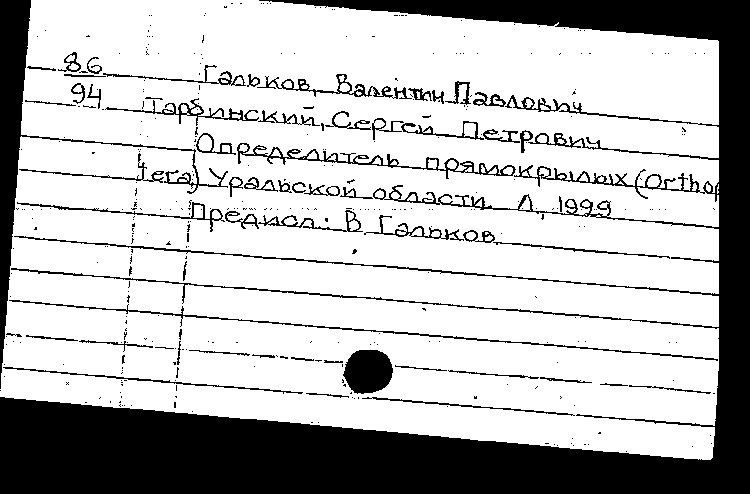 86 Гальков, Валентин Павлович
94 Тарбинский, Сергей Петрович
Определитель прямокрылых (Orthop
tera) Уральской области. Л., 1999
Предисл.: В. Гальков